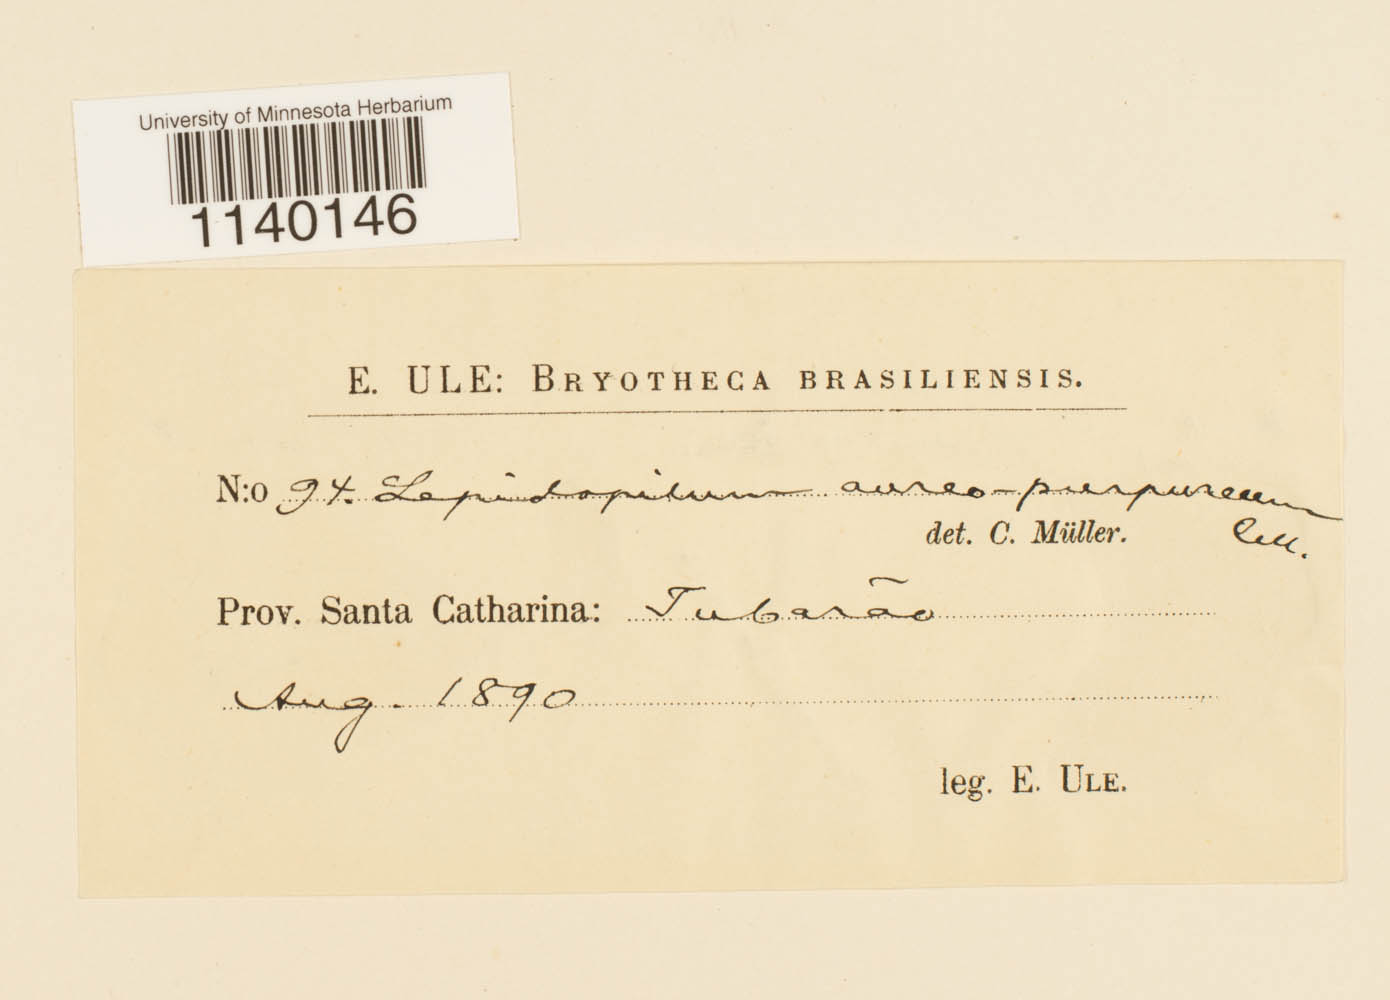 University of Minnesota Herbarium
1140146
E. ULE: BRYOTHECA BRASILIENSIS.
N:o 94. Lepidopilum aureo-purpureum
det. C. Müller. C.M.
Prov. Santa Catharina: Tubarão
Aug. 1890
leg. E. ULE.